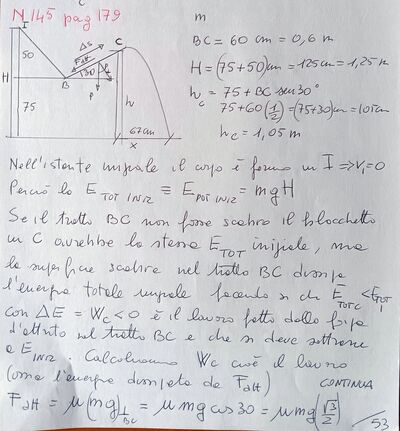 N. 145 pag 179
I
50
ΔS
FaH
C
H
B
130
P
75
h
x
67cm
m
BC = 60 cm = 0,6 m
H = (75+50)cm = 125cm = 1,25 m
hc = 75 + BC sen 30°
75+60(1/2) = (75+30)cm = 105cm
hc = 1,05 m
Nell'istante iniziale il corpo è fermo in I ⇒ Vi=0
Perciò lo E TOT INIZ ≡ E POT INIZ = mgH
Se il tratto BC non fosse scabro il blocchetto
in C avrebbe la stessa E TOT iniziale, ma
la superficie scabra nel tratto BC dissipa
l'energia totale iniziale facendo sì che E TOT C < E TOT I
con ΔE = Wc < 0 è il lavoro fatto dalla forza
d'attrito nel tratto BC e che si deve sottrarre
a E INIZ. Calcoliamo Wc cioè il lavoro
(ossia l'energia dissipata da FaH) CONTINUA
FaH = μ(mg)⊥BC = μ mg cos 30 = μ mg (√3/2)
/53